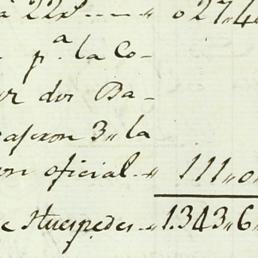 à 22x----- " 027,4
p.ª la Co-
ur dos Ba-
caseron 3,, la
on oficial.. 111,,0,
e Huespedes.. 1.343,,6,